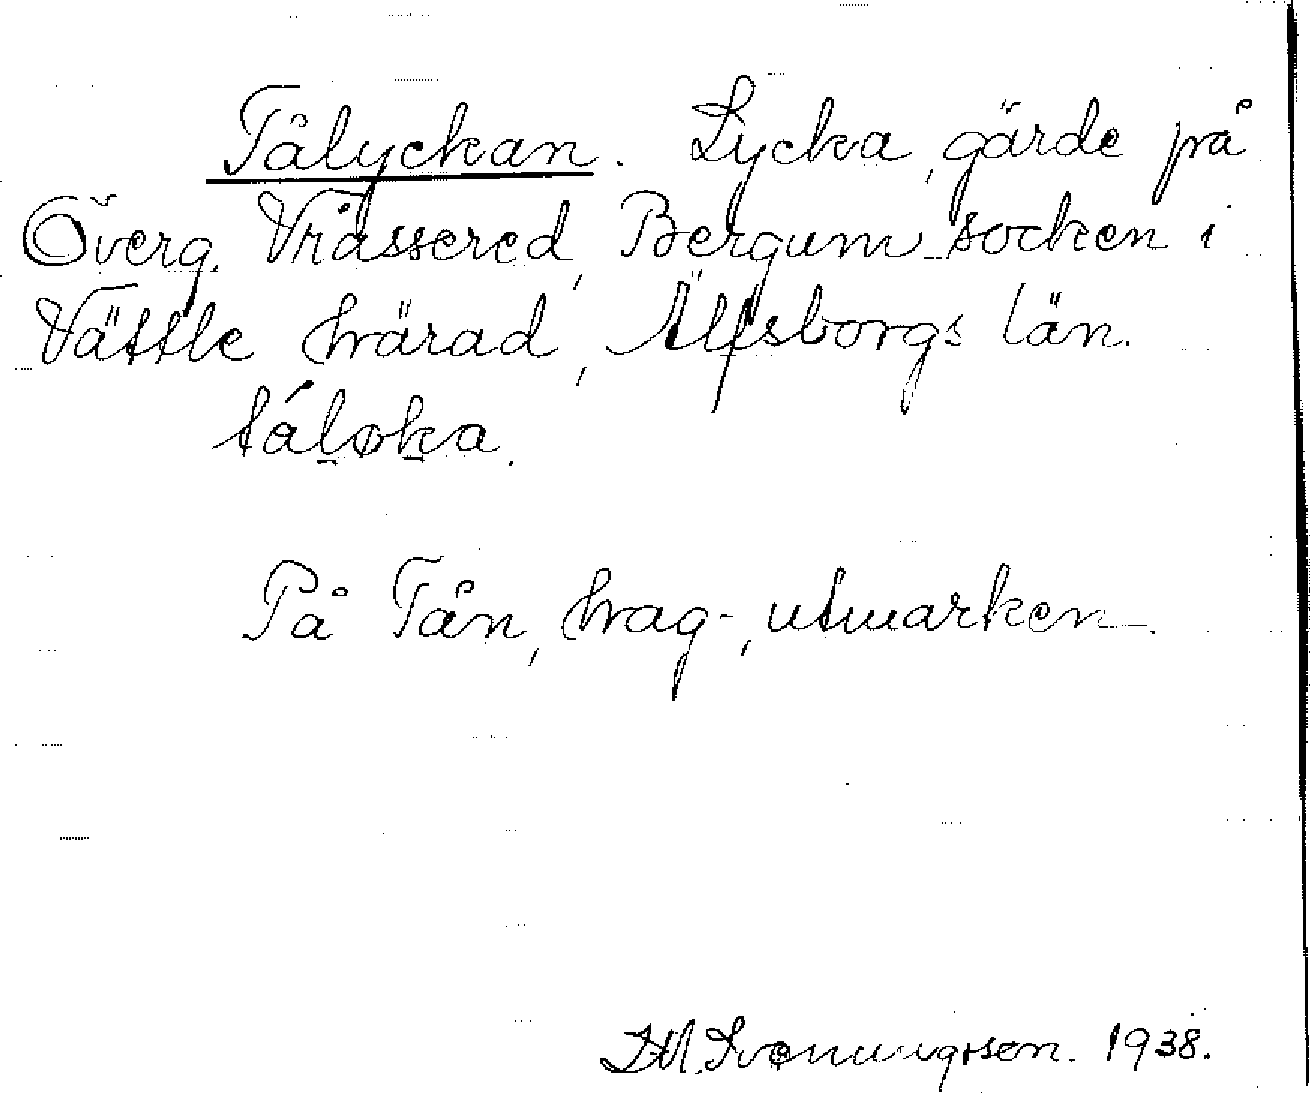 Tålyckan. Lycka, gärde på
Överg. Vråssered, Bergum socken i
Vättle härad, Älfsborgs län.
tálø̱ka.
På Tån, hag-, utmarken.
D.M. Svenningsson. 1938.